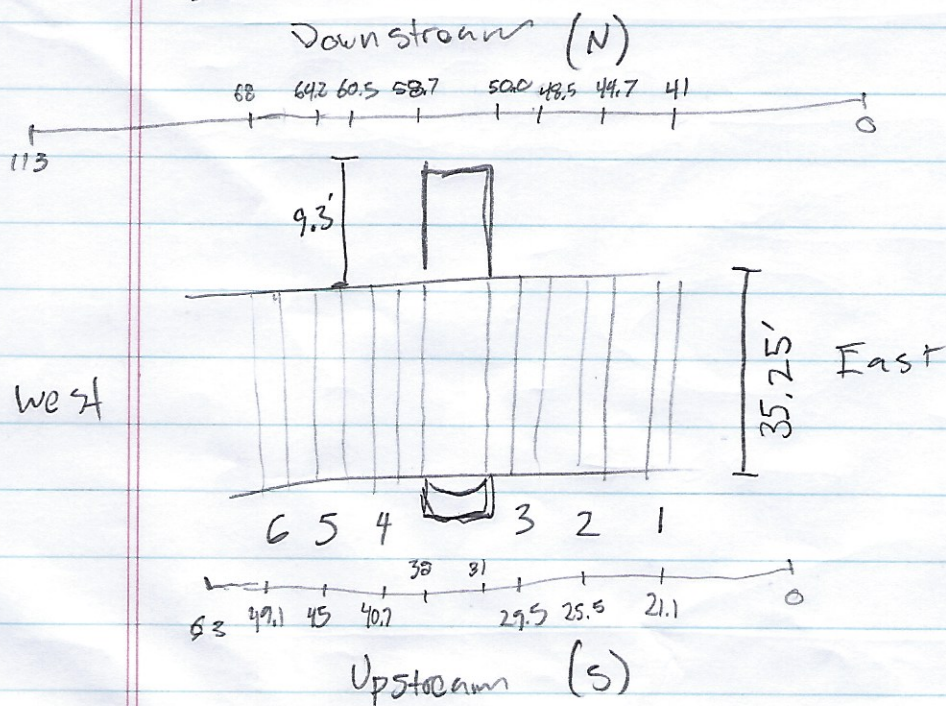 Downstream (N)
68 64.2 60.5 58.7 50.0 48.5 44.7 41
113 0
9.3'
West 35.25' East
6 5 4 3 2 1
38 31
63 49.1 45 40.7 29.5 25.5 21.1 0
Upstream (S)